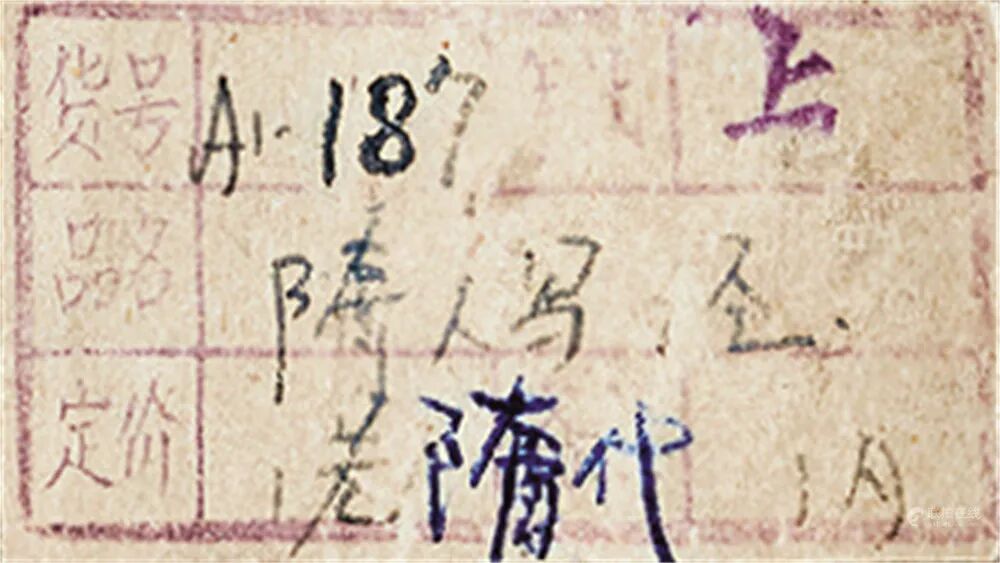 货号 A1-187 上
品名 隋人写经.
定价 隋代